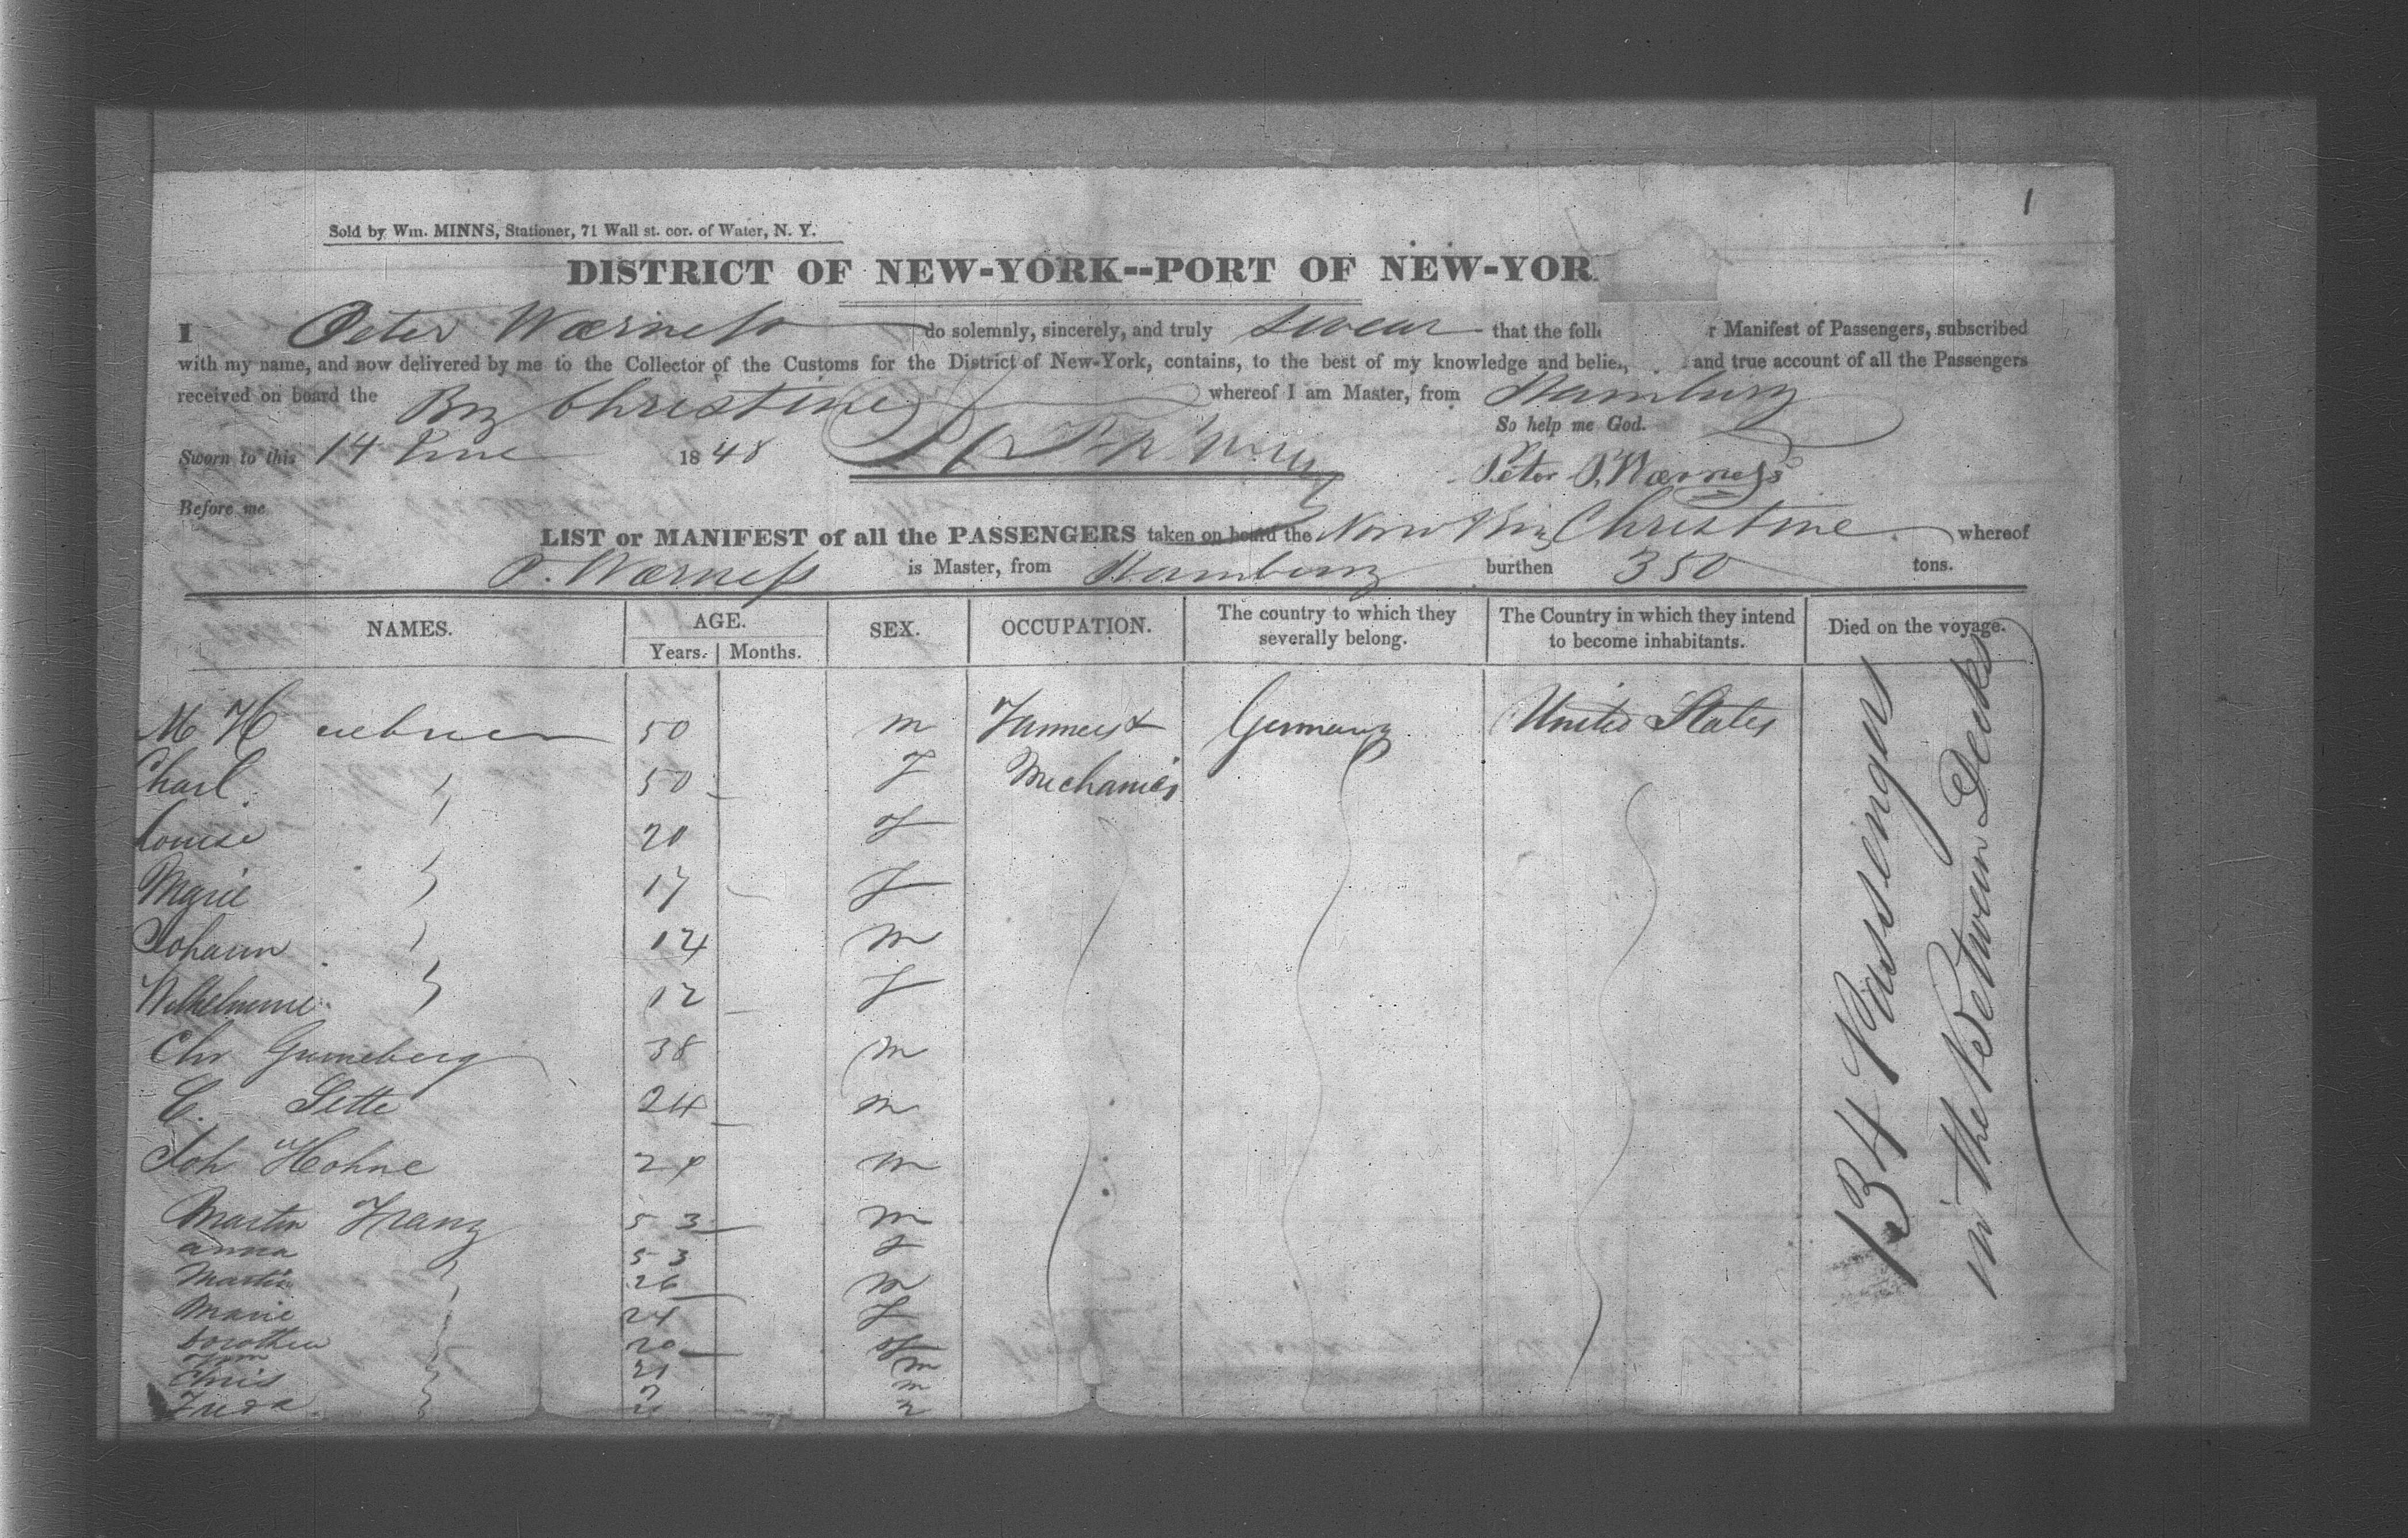 1
Sold by Wm. MINNS, Stationer, 71 Wall st. cor. of Water, N. Y.
DISTRICT OF NEW-YORK--PORT OF NEW-YOR
I Peter Wærness do solemnly, sincerely, and truly swear that the foll r Manifest of Passengers, subscribed
with my name, and now delivered by me to the Collector of the Customs for the District of New-York, contains, to the best of my knowledge and belief, and true account of all the Passengers
received on board the Brg Christine whereof I am Master, from Hamburg
So help me God.
Sworn to this 14 June 1848
Peter P. Wærness
Before me
LIST or MANIFEST of all the PASSENGERS taken on board the Norw Brig Christine whereof
P. Wærness is Master, from Hamburg burthen 350 tons.
NAMES. AGE. Years. Months. SEX. OCCUPATION. The country to which they severally belong. The Country in which they intend to become inhabitants. Died on the voyage.
M H 50 m Farmers & Germany United States
Charl 50 f Mechanics
Louise 20 f
Marie 17 f
Johann 14 m
Wilhelmine 12 f
Chr Gruneberg 38 m
C. Lette 24 m
Joh Hohne 24 m
Martin Franz 53 m
Anna 53 f
Martin 26 m
Marie 24 f
Dorothea 20 f
21 m
Chris 7 m
134 Passengers
in the Between Decks